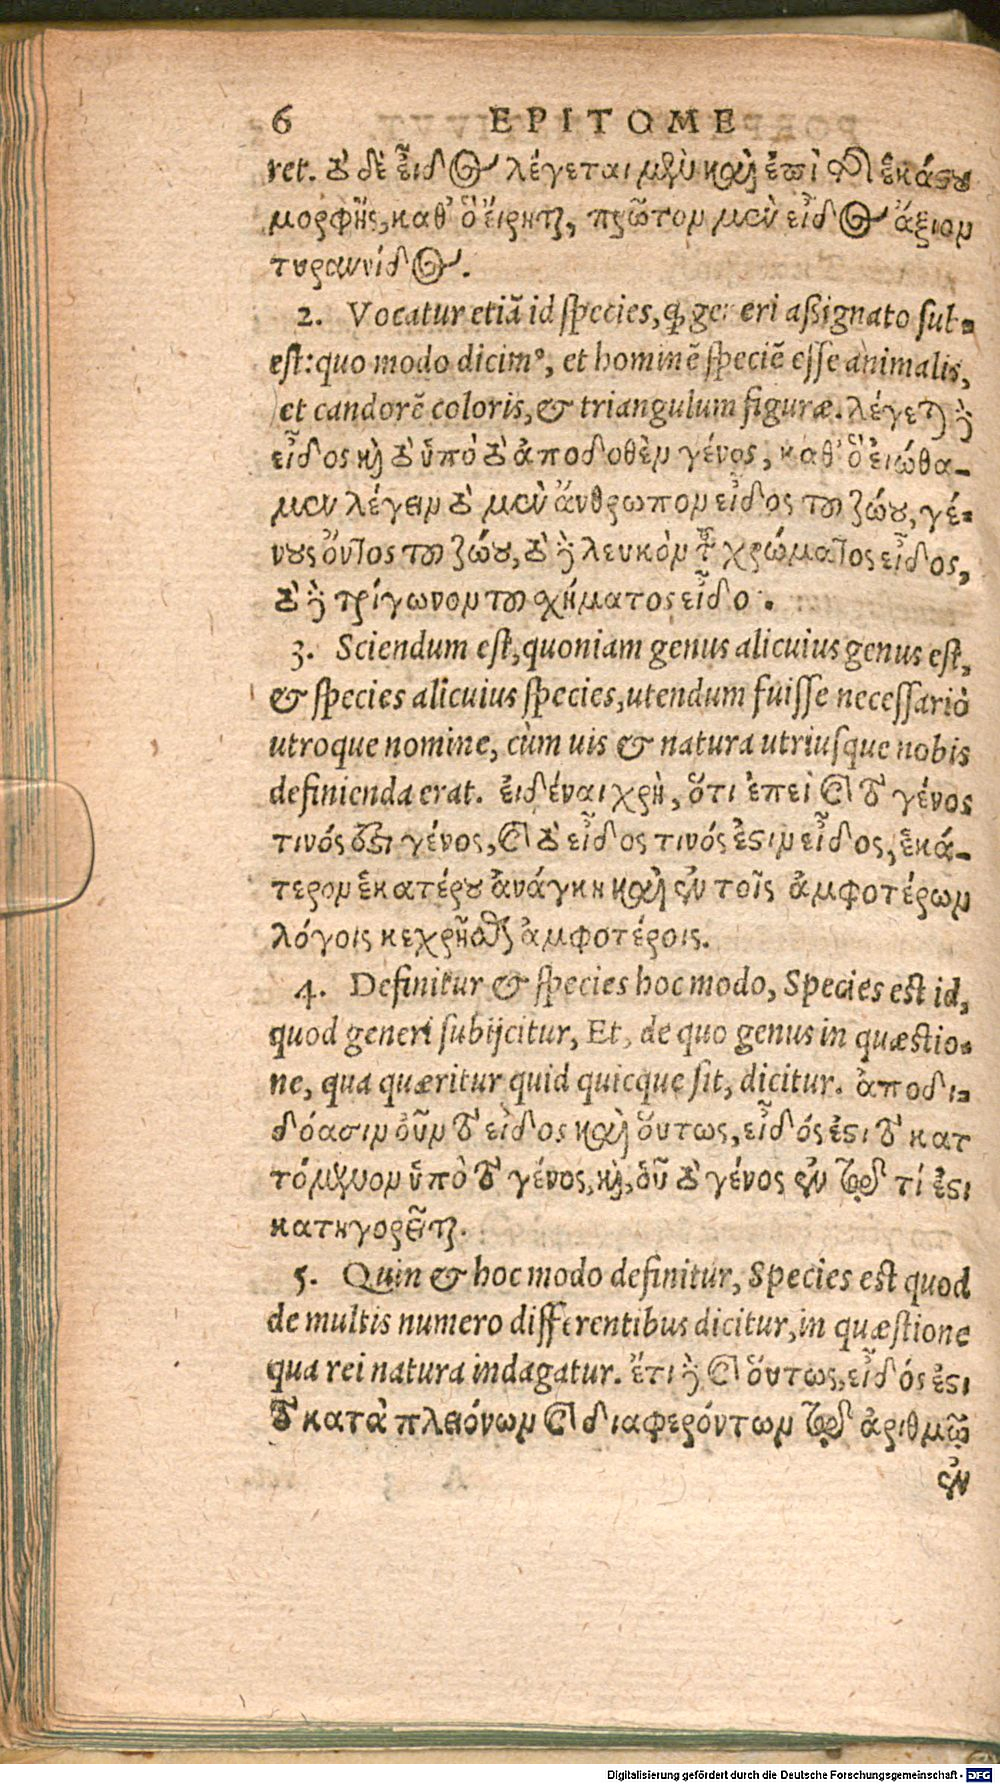 6 EPITOME
ret. τὸ δὲ εἶδος λέγεται μὲν καὶ ἐπὶ τῆς ἑκάστου
μορφῆς, καθ' ὃ εἴρηται, πρῶτον μὲν εἶδος ἄξιον
τυραννίδος.
2. Vocatur etiã id species, q̃ generi aßignato sub-
est: quo modo dicim⁹, et hominẽ speciẽ esse animalis,
et candorẽ coloris, & triangulum figuræ. λέγεται δὲ
εἶδος καὶ τὸ ὑπὸ τὸ ἀποδοθὲν γένος, καθ' ὃ εἰώθα-
μεν λέγειν τὸ μὲν ἄνθρωπον εἶδος τοῦ ζώου, γέ-
νους ὄντος τοῦ ζώου, τὸ δὲ λευκὸν τοῦ χρώματος εἶδος,
τὸ δὲ τρίγωνον τοῦ σχήματος εἶδος.
3. Sciendum est, quoniam genus alicuius genus est,
& species alicuius species, utendum fuisse necessariò
utroque nomine, cùm uis & natura utriusque nobis
definienda erat. εἰδέναι χρὴ, ὅτι ἐπεὶ καὶ τὸ γένος
τινός ἐστι γένος, καὶ τὸ εἶδος τινός ἐστιν εἶδος, ἑκά-
τερον ἑκατέρου ἀνάγκη καὶ ἐν τοῖς ἀμφοτέρων
λόγοις κεχρῆσθαι ἀμφοτέροις.
4. Definitur & species hoc modo, Species est id,
quod generi subijcitur, Et, de quo genus in quæstio-
ne, qua quæritur quid quicque sit, dicitur. ἀποδι-
δόασιν οὖν τὸ εἶδος καὶ οὕτως, εἶδός ἐστι τὸ κατ
τόμενον ὑπὸ τὸ γένος, καὶ, οὗ τὸ γένος ἐν τῷ τί ἐστι
κατηγορεῖται.
5. Quin & hoc modo definitur, Species est quod
de multis numero differentibus dicitur, in quæstione
qua rei natura indagatur. ἔτι δὲ καὶ οὕτως, εἶδός ἐστι
τὸ κατὰ πλειόνων καὶ διαφερόντων τῷ ἀριθμῷ
ἐν
Digitalisierung gefördert durch die Deutsche Forschungsgemeinschaft - DFG